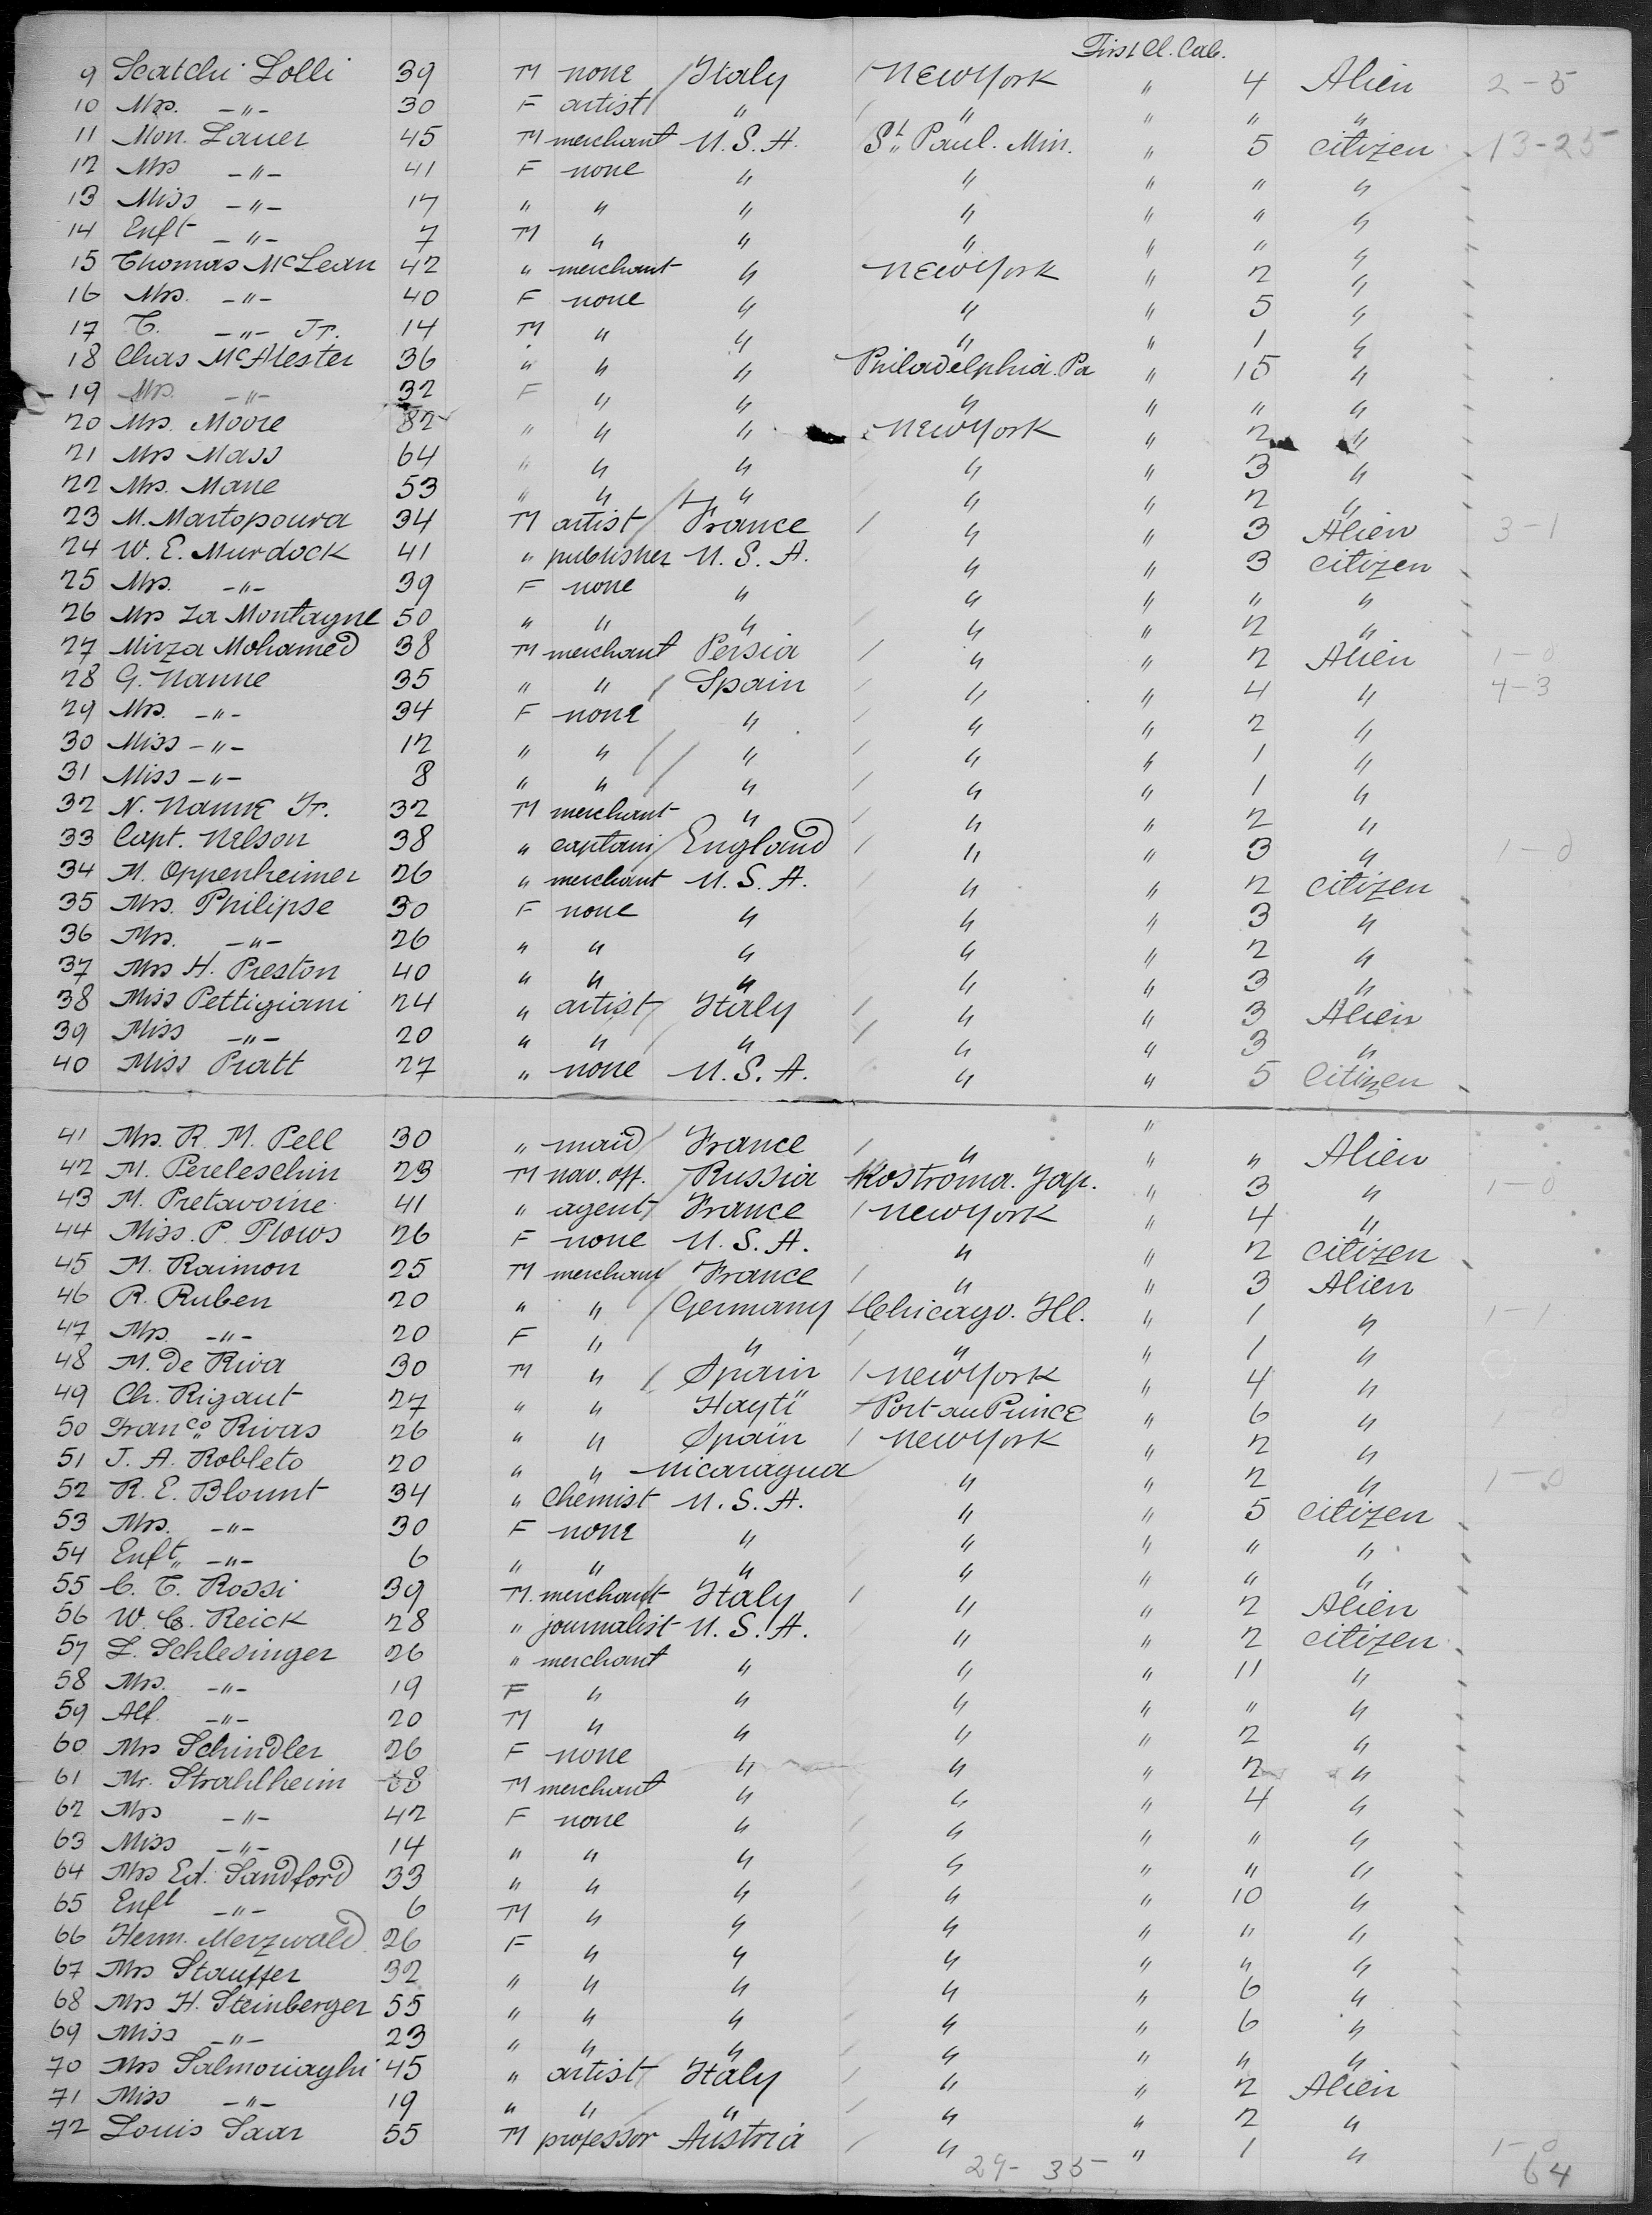 First Cl. Cab.
9 Scalchi Lolli 39 M none Italy New York " 4 Alien 2-5
10 Mrs. -"- 30 F artist " " " " "
11 Mon. Lauer 45 M merchant U.S.A. St. Paul. Min. " 5 citizen 13-25
12 Mrs -"- 41 F none " " " " "
13 Miss -"- 17 " " " " " " "
14 Enft -"- 7 M " " " " " "
15 Thomas McLean 42 " merchant " New York " 2 "
16 Mrs. -"- 40 F none " " " 5 "
17 T. -"- Jr. 14 M " " " " 1 "
18 Chas McAlester 36 " " " Philadelphia. Pa " 15 "
19 Mrs. -"- 32 F " " " " " "
20 Mrs. Moore 82 " " " New York " 2 "
21 Mrs Mass 64 " " " " " 3 "
22 Mrs. Mane 53 " " " " " 2 "
23 M. Martopoura 34 M artist France " " 3 Alien 3-1
24 W. E. Murdock 41 " publisher U.S.A. " " 3 citizen
25 Mrs. -"- 39 F none " " " " "
26 Mrs La Montagne 50 " " " " " 2 "
27 Mirza Mohamed 38 M merchant Persia " " 2 Alien 1-0
28 G. Nanne 35 " " Spain " " 4 " 4-3
29 Mrs. -"- 34 F none " " " 2 "
30 Miss -"- 12 " " " " " 1 "
31 Miss -"- 8 " " " " " 1 "
32 N. Nanne Jr. 32 M merchant " " " 2 "
33 Capt. Nelson 38 " captain England " " 3 " 1-0
34 M. Oppenheimer 26 " merchant U.S.A. " " 2 citizen
35 Mrs. Philipse 30 F none " " " 3 "
36 Mrs. -"- 26 " " " " " 2 "
37 Mrs H. Preston 40 " " " " " 3 "
38 Miss Pettigiani 24 " artist Italy " " 3 Alien
39 Miss -"- 20 " " " " " 3 "
40 Miss Pratt 27 " none U.S.A. " " 5 Citizen
"
41 Mrs. R. M. Pell 30 " maid France " " " Alien
42 M. Pereleschin 23 M nav. off. Russia Kostroma. Jap. " 3 " 1-0
43 M. Pretavoine 41 " agent France New York " 4 "
44 Miss. P. Plows 26 F none U.S.A. " " 2 citizen
45 M. Raimon 25 M merchant France " " 3 Alien
46 R. Ruben 20 " " Germany Chicago. Ill. " 1 " 1-1
47 Mrs -"- 20 F " " " " 1 "
48 M. De Riva 30 M " Spain New York " 4 "
49 Ch. Rigaut 27 " " Hayti Port au Prince " 6 "
50 Franco. Rivas 26 " " Spain New York " 2 "
51 J. A. Robleto 20 " " Nicaragua " " 2 " 1-0
52 R. E. Blount 34 " Chemist U.S.A. " " 5 citizen
53 Mrs. -"- 30 F none " " " " "
54 Enft. -"- 6 " " " " " " "
55 C. T. Rossi 39 M. merchant Italy " " 2 Alien
56 W. C. Reick 28 " journalist U.S.A. " " 2 citizen
57 L. Schlesinger 26 " merchant " " " 11 "
58 Mrs. -"- 19 F " " " " " "
59 Alf. -"- 20 M " " " " 2 "
60 Mrs Schindler 26 F none " " " 2 "
61 Mr. Strahlheim M merchant " " " 4 "
62 Mrs -"- 42 F none " " " " "
63 Miss -"- 14 " " " " " " "
64 Mrs Ed. Sandford 33 " " " " " 10 "
65 Enft -"- 6 M " " " " " "
66 Herm. Merzwald 26 F " " " " " "
67 Mrs Stauffer 32 " " " " " 6 "
68 Mrs H. Steinberger 55 " " " " " 6 "
69 Miss -"- 23 " " " " " " "
70 Mrs Salmoriaghi 45 " artist Italy " " 2 Alien
71 Miss -"- 19 " " " " " 2 "
72 Louis Saar 55 M professor Austria " " 1 " 1-0
29- 35 64